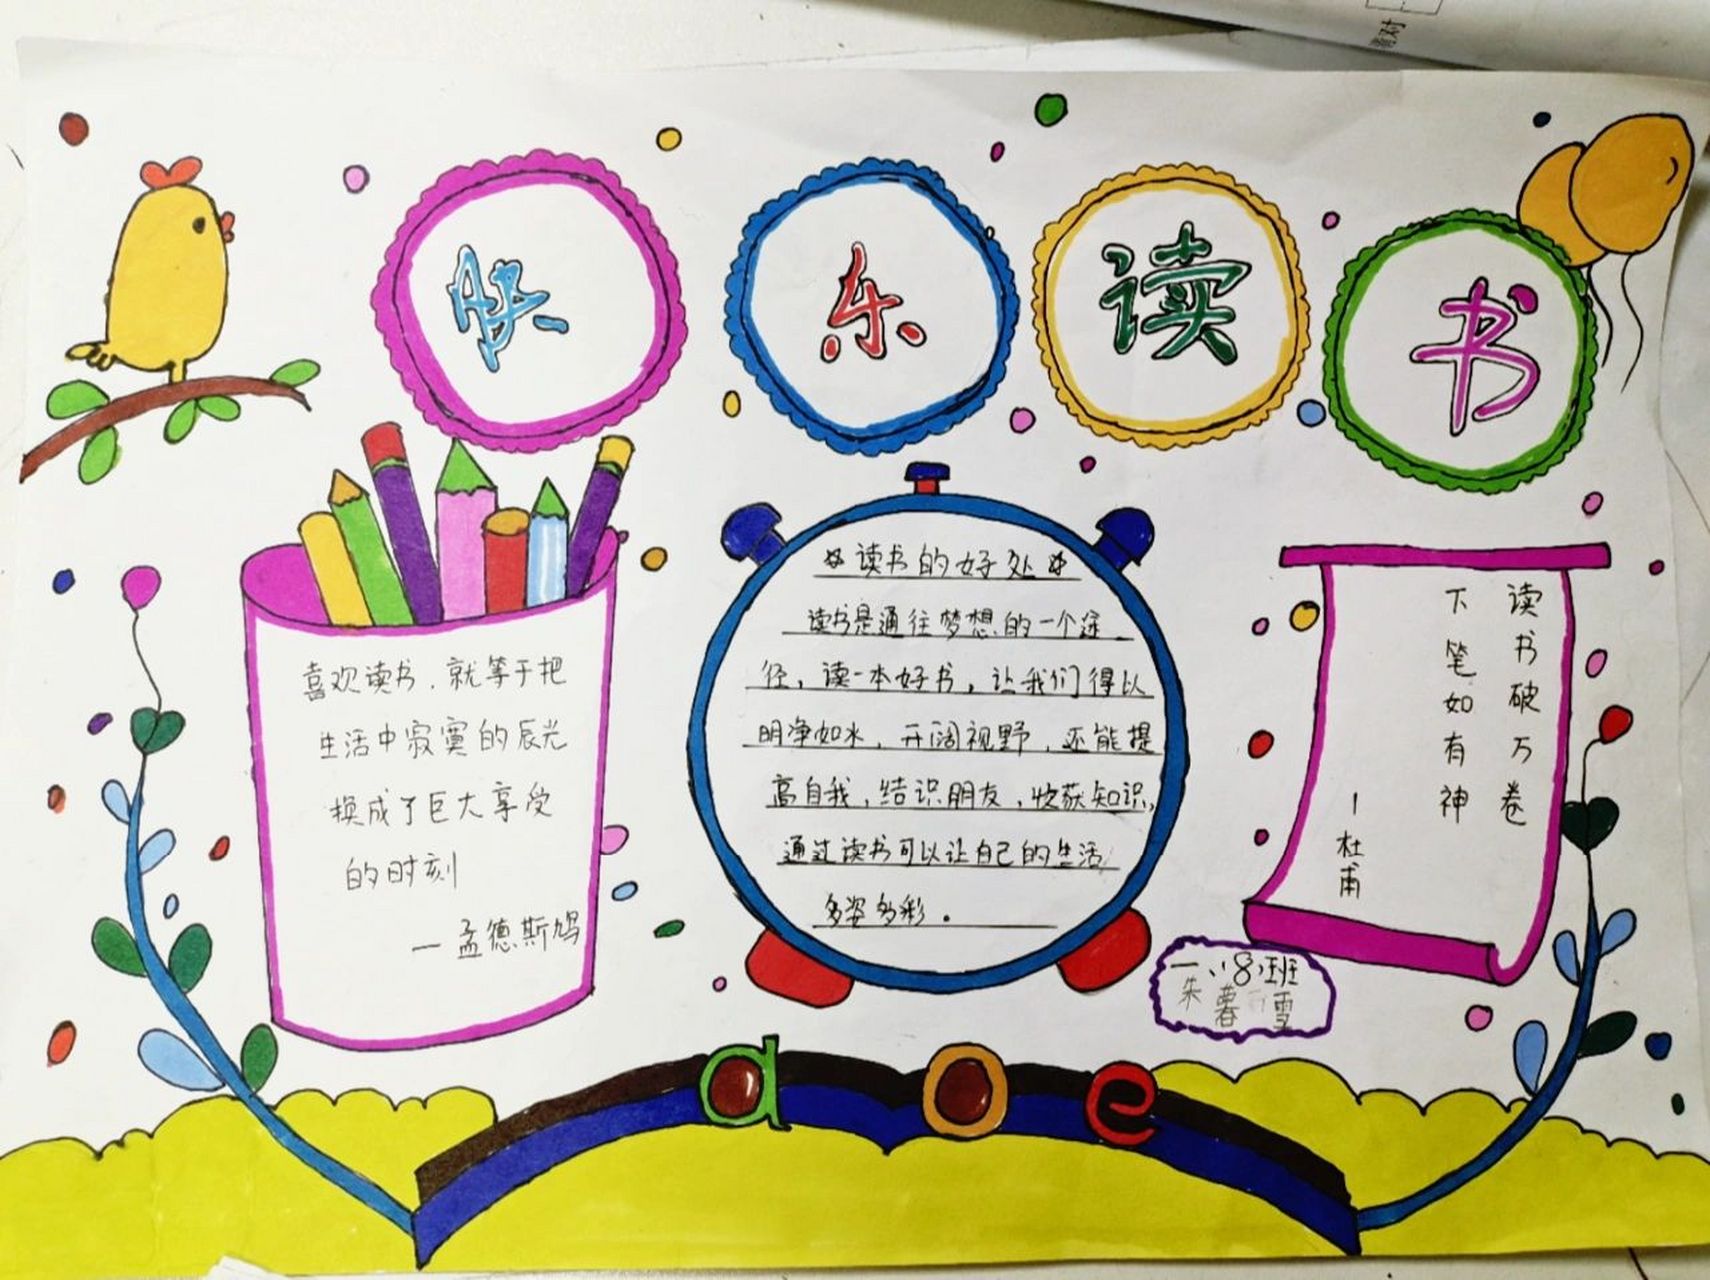 快乐读书
喜欢读书，就等于把
生活中寂寞的辰光
换成了巨大享受
的时刻
—孟德斯鸠
读书的好处
读书是通往梦想的一个途
径，读一本好书，让我们得以
明净如水，开阔视野，还能提
高自我，结识朋友，收获知识，
通过读书可以让自己的生活
多姿多彩。
读书破万卷
下笔如有神
—杜甫
一、8班
朱慕雪
a o e